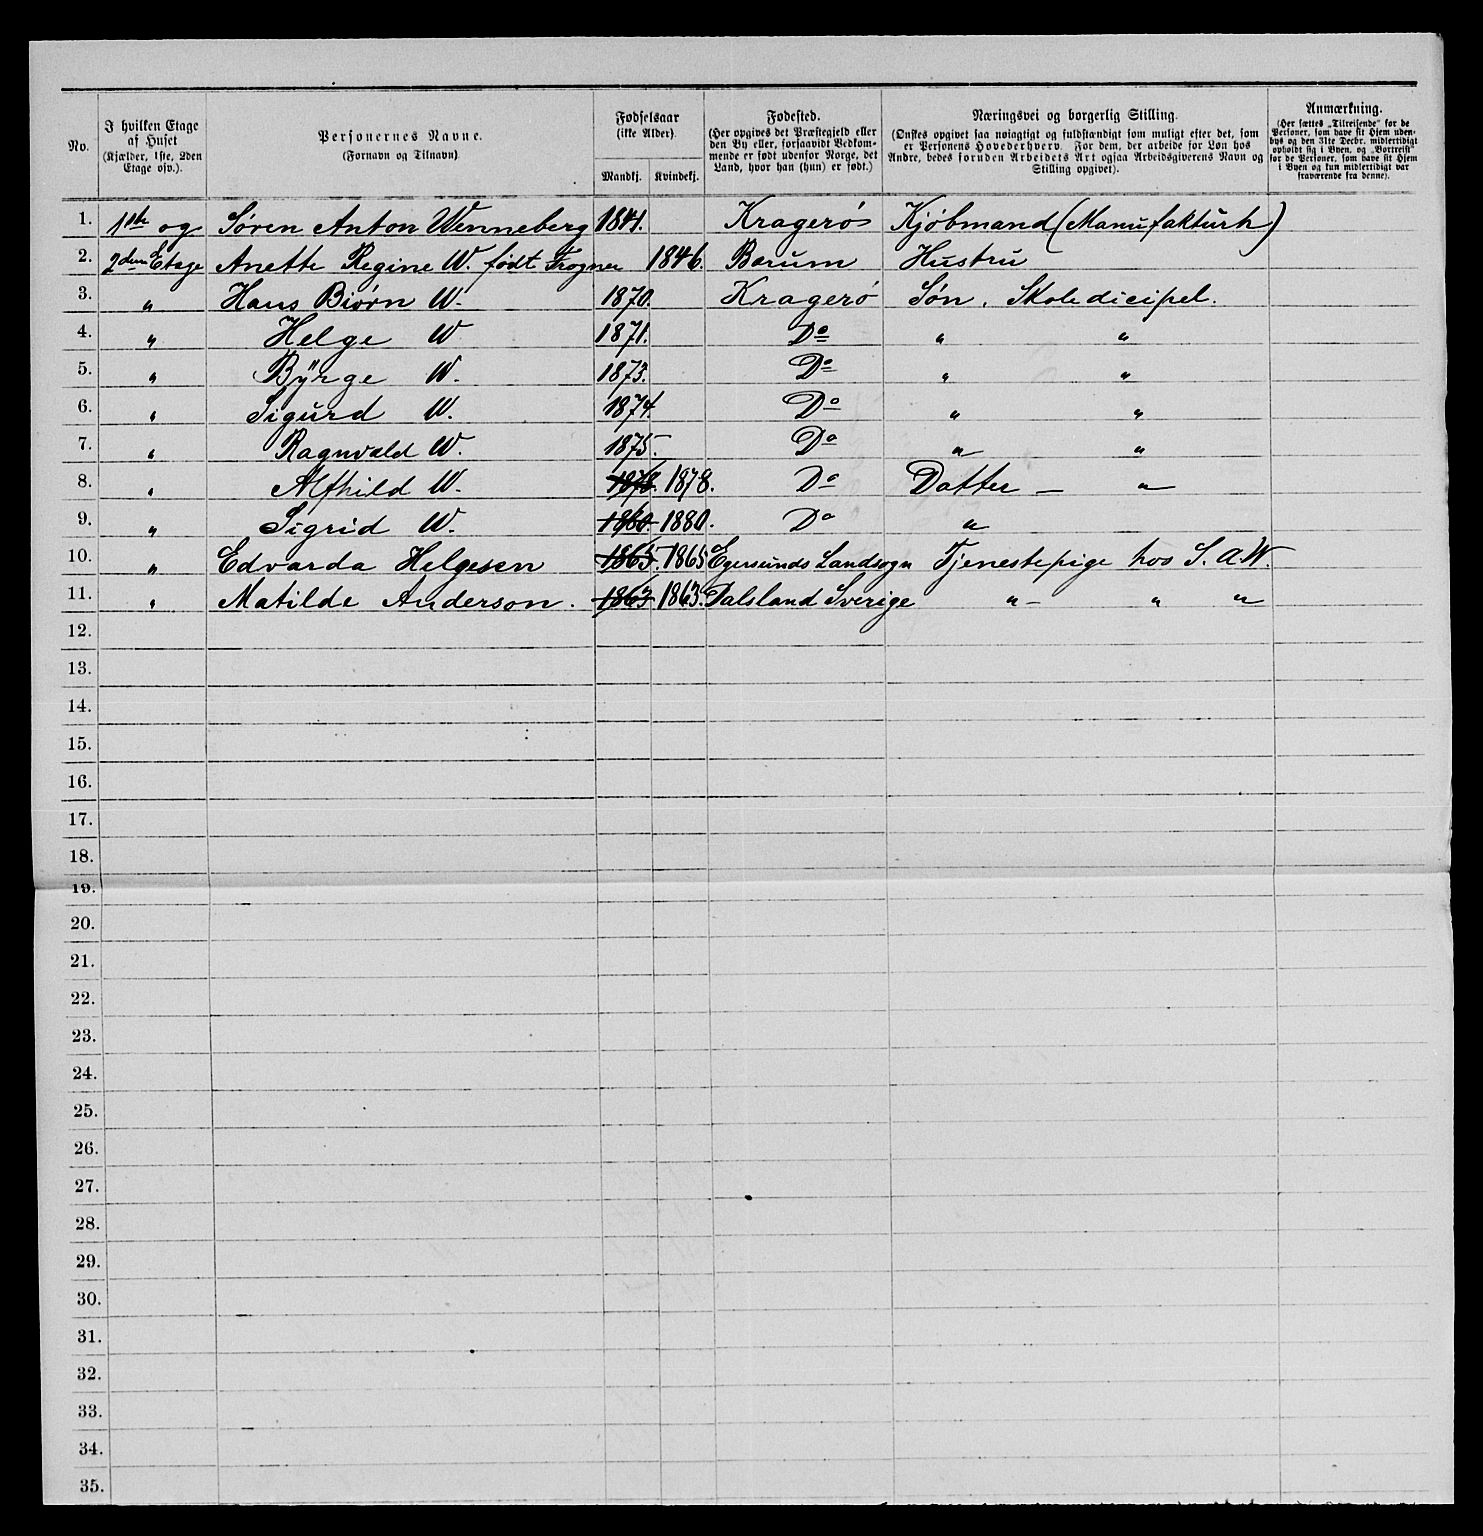 No.
I hvilken Etage af Huset (Kjælder, 1ste, 2den Etage osv.).
Personernes Navne. (Fornavn og Tilnavn)
Fødselsaar (ikke Alder).
Mandkj. Kvindekj.
Fødested. (Her opgives det Præstegjeld eller den By eller, forsaavidt Vedkommende er født udenfor Norge, det Land, hvor han (hun) er født.)
Næringsvei og borgerlig Stilling. (Ønskes opgivet saa nøiagtigt og fuldstændigt som muligt efter det, som er Personens Hovederhverv. For dem, der arbeide for Løn hos Andre, bedes foruden Arbeidets Art ogsaa Arbeidsgiverens Navn og Stilling opgivet).
Anmærkning. (Her sættes „Tilreisende" for de Personer, som have sit Hjem udenbys og den 31te Decbr. midlertidigt opholdt sig i Byen, og „Bortreist" for de Personer, som have sit Hjem i Byen og kun midlertidigt var fraværende fra denne).
1. 1ste og Søren Anton Wenneberg 1841. Kragerøs Kjøbmand (Manufakturh)
2. 2den Etage Anette Regine W. født Trogner 1846. Barum Hustru
3. " Hans Biørn W. 1870. Kragerø Søn. Skoledicipel.
4. " Helge W 1871. Do " "
5. " Byrge W. 1873. Do " "
6. " Sigurd W. 1874. Do " "
7. " Ragnvald W. 1875. Do " "
8. " Alfhild W. 1878. 1878. Do Datter — "
9. " Sigrid W. 1880. 1880. Do "
10. " Edvarda Helgesen 1865. 1865 Egersunds Landsogn Tjenestepige hos S. A. W.
11. " Matilde Anderson. 1863 1863. Dalsland Sverige " " "
12.
13.
14.
15.
16.
17.
18.
19.
20.
21.
22.
23.
24.
25.
26.
27.
28.
29.
30.
31.
32.
33.
34.
35.